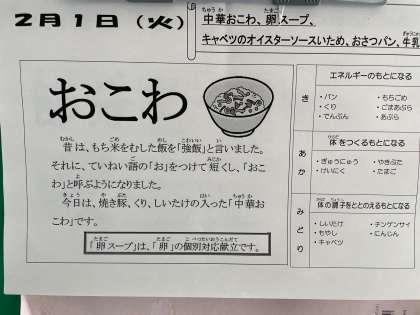 2月1日(火)
中華おこわ、卵スープ、
キャベツのオイスターソースいため、おさつパン、牛乳
おこわ
昔は、もち米をむした飯を「強飯」と言いました。
それに、ていねい語の「お」をつけて短くし、「おこ
わ」と呼ぶようになりました。
今日は、焼き豚、くり、しいたけの入った「中華お
こわ」です。
「卵スープ」は、「卵」の個別対応献立です。
エネルギーのもとになる
き
・パン ・もちごめ
・くり ・ごまあぶら
・でんぷん ・あぶら
体をつくるもとになる
あか
・ぎゅうにゅう ・やきぶた
・けいにく ・たまご
体の調子をととのえるもとになる
みどり
・しいたけ ・チンゲンサイ
・もやし ・にんじん
・キャベツ